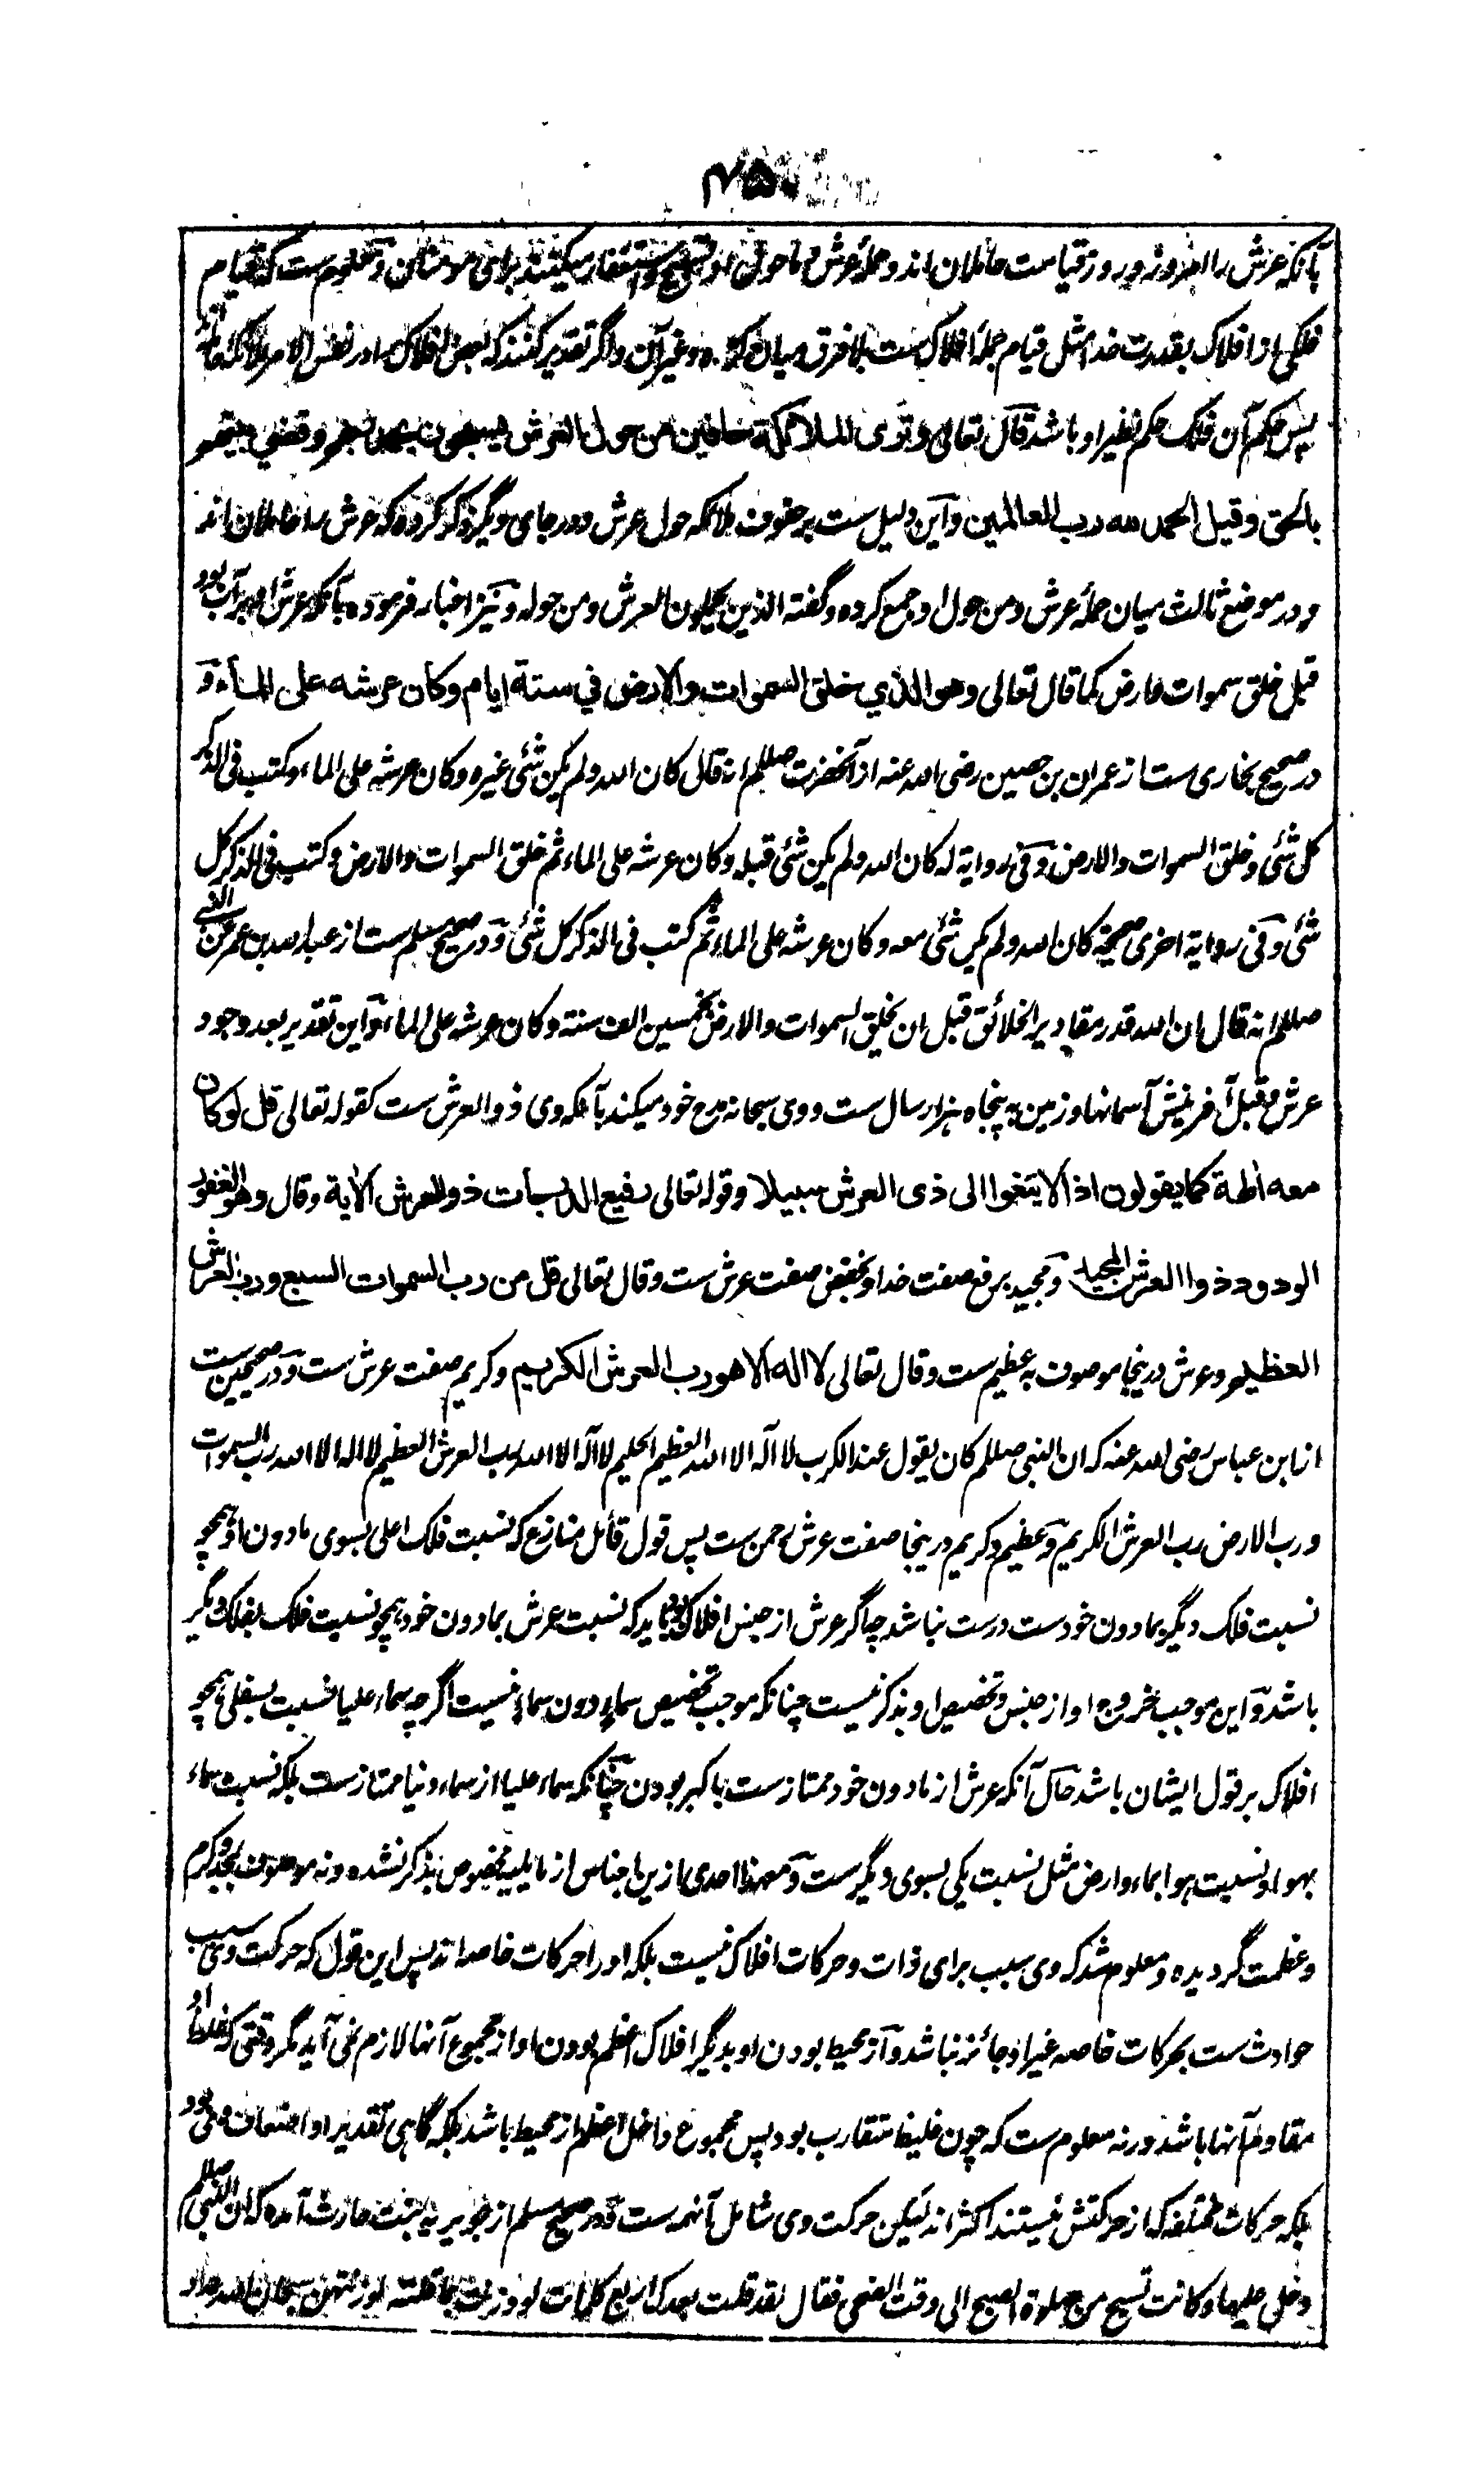 ۴۵۰
بآنکه عرش را امروز و روز قیامت حاملان اند و حملهٔ عرش و ماحول او تسبیح و استغفار میکنند برای مومنان و معلوم ست که قیام
فلکی از افلاک بقدرت خدا مثل قیام جملهٔ افلاک ست بلا فرق میان کره و غیر آن واگر تقدیر کنند که بعض افلاک را در نفس الامر ملائکه
پس حکم آن فلک حکم نظیر او باشد قال تعالی وتری الملائکة حافین من حول العرش یسبحون بحمد ربهم وقضی بینهم
بالحق وقیل الحمد لله رب العالمین و این دلیل ست بر حفوف ملائکه حول عرش و در جای دیگر ذکر کرده که عرش را حاملان اند
و در موضع ثالث میان حملهٔ عرش و من حول او جمع کرده و گفته الذین یحملون العرش ومن حوله و نیز اخبار فرموده بآنکه عرش او بر آب بود
قبل خلق سموات وارض کما قال تعالی وهو الذي خلق السموات والارض في ستة ایام وکان عرشه علی الماء و
در صحیح بخاری ست از عمران بن حصین رضی الله عنه از آنحضرت صلعم انه قال کان الله ولم یکن شئی غیره وکان عرشه علی الماء وکتب فی الذکر
کل شئی وخلق السموات والارض وفی روایة له کان الله ولم یکن شئی قبله وکان عرشه علی الماء ثم خلق السموات والارض وکتب فی الذکر کل
شئی وفی روایة اخری صحیحة کان الله ولم یکن شئی معه وکان عرشه علی الماء ثم کتب فی الذکر کل شئی و در صحیح مسلم ست از عبدالله بن عمر عن النبی
صلعم انه قال ان الله قدر مقادیر الخلائق قبل ان یخلق السموات والارض بخمسین الف سنة وکان عرشه علی الماء و این تقدیر بعد وجود
عرش و قبل آفرینش آسمانها و زمین به پنجاه هزار سال ست و وی سبحانه مدح خود میکند بآنکه وی ذو العرش ست کقوله تعالی قل لو کان
معه الهة کما یقولون اذا لابتغوا الی ذی العرش سبیلا وقوله تعالی رفیع الدرجات ذو العرش الآیة وقال وهو الغفور
الودود ذوا العرش المجید و مجید برفع صفت خدا و بخفض صفت عرش ست وقال تعالی قل من رب السموات السبع ورب العرش
العظیم و عرش درینجا موصوف به عظیم ست وقال تعالی لا اله الا هو رب العرش الکریم و کریم صفت عرش ست و در صحیحین ست
از ابن عباس رضی الله عنه که ان النبی صلعم کان یقول عند الکرب لا اله الا الله العظیم الحلیم لا اله الا الله رب العرش العظیم لا اله الا الله رب السموات
ورب الارض رب العرش الکریم و عظیم و کریم درینجا صفت عرش رحمن ست پس قول قائل منازع که نسبت فلک اعلی بسوی مادون او همچو
نسبت فلک دیگر بمادون خودست درست نباشد چه اگر عرش از جنس افلاک بود باید که نسبت عرش بمادون خود همچو نسبت فلک بفلک دیگر
باشد و این موجب خروج او از جنس و تخصیص او بذکر نیست چنانکه موجب تخصیص سماء دون سماء نیست اگرچه سماء علیا نسبت بسفلی همچو
افلاک بر قول ایشان باشد حال آنکه عرش از مادون خود ممتازست باکبر بودن چنانکه سماء علیا از سماء دنیا ممتازست بلکه نسبت سماء
بهوا و نسبت هوا بماء وارض مثل نسبت یکی بسوی دیگرست و معهذا احدی ازین اجناس از مایلیه مخصوص بذکر نشده و نه موصوف بمجد و کرم
و عظمت گردیده و معلوم شد که وی سبب برای ذات و حرکات افلاک نیست بلکه او را حرکات خاصه اند پس این قول که حرکت وی سبب
حوادث ست بحرکات خاصه غیر او جائز نباشد و از محیط بودن او بدیگر افلاک اعظم بودن او از مجموع آنها لازم نمی آید مگر وقتی که غلظ او
مقاوم آنها باشد ورنه معلوم ست که چون غلیظ متقارب بود پس مجموع داخل اعظم از محیط باشد بلکه گاهی تقدیر او اضعاف وی بود
بلکه حرکات مختلفه که از حرکتش نیستند اکثر اند لیکن حرکت وی شامل آنهمه ست و در صحیح مسلم از جویریه بنت حارث آمده که ان النبی صلعم
دخل علیها وکانت تسبح من صلوة الصبح الی وقت الضحی فقال لقد قلت بعدک اربع کلمات لو وزنت بما قلته لوزنتهن سبحان الله عدد